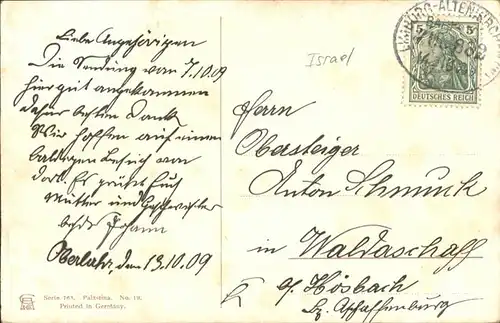 Liebe Angehörigen
Die Sendung vom 7.10.09
hier gut angekommen
daher besten Dank
Wir hoffen auf einen
baldigen Besuch von
dort. Es grüßt Euch
Mutter und Geschwister
Johann
Oberlahr, den 13.10.09
Israel
LIMBURG-ALTENKIRCHEN
5 5
DEUTSCHES REICH
Herrn
Obersteiger
Anton Schmunk
in Waldaschaff
Hösbach
b. Aschaffenburg
Serie 165. Palästina. No. 18.
Printed in Germany.